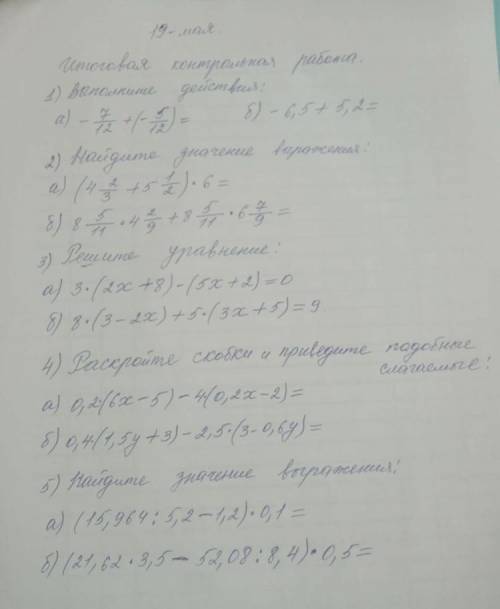 19-мая.
Итоговая контрольная работа.
1) Выполните действия:
а) -7/12 + (-5/12) = б) -6,5 + 5,2 =
2) Найдите значение выражения:
а) (4 2/3 + 5 1/2) · 6 =
б) 8 5/11 · 4 2/9 + 8 5/11 · 6 7/9 =
3) Решите уравнение:
а) 3·(2x+8)-(5x+2)=0
б) 8·(3-2x)+5·(3x+5)=9
4) Раскройте скобки и приведите подобные
слагаемые:
а) 0,2·(6x-5)-4(0,2x-2)=
б) 0,4(1,5y+3)-2,5·(3-0,6y)=
5) Найдите значение выражения:
а) (15,964:5,2-1,2)·0,1=
б) (21,62·3,5-52,08:8,4)·0,5=